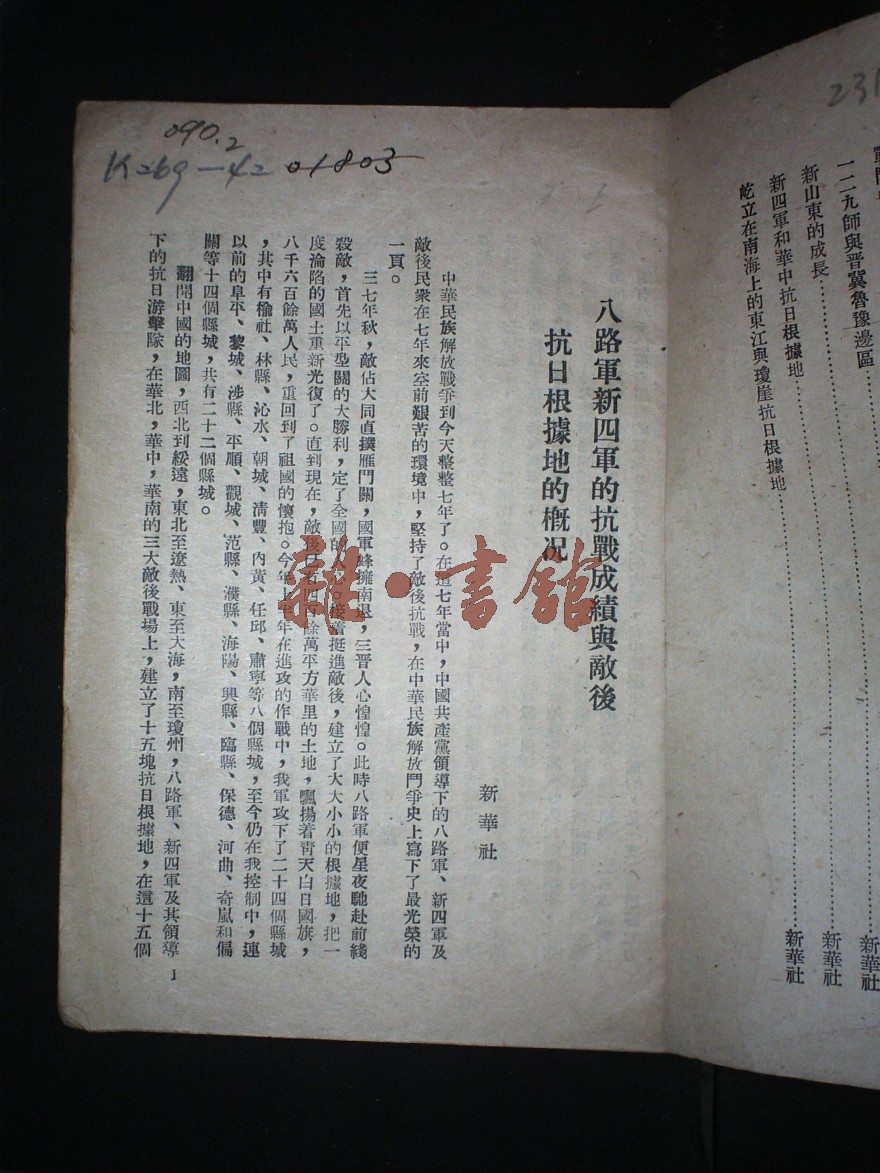 231
一二九師與晋冀魯豫邊區
新華社
新山東的成長
新華社
新四軍和華中抗日根據地
新華社
屹立在南海上的東江與瓊崖抗日根據地
090.2
K269-42 01803
八路軍新四軍的抗戰成績與敵後
抗日根據地的概況
新華社
中華民族解放戰爭到今天整整七年了。在這七年當中,中國共產黨領導下的八路軍、新四軍及
敵後民衆在七年來空前艱苦的環境中,堅持了敵後抗戰,在中華民族解放鬥爭史上寫下了最光榮的
一頁。
三七年秋,敵佔大同直撲雁門關,國軍蜂擁南退,三晋人心惶惶。此時八路軍便星夜馳赴前綫
殺敵,首先以平型關的大勝利,定了全國的人心。接着挺進敵後,建立了大大小小的根據地,把一
度淪陷的國土重新光復了。直到現在,敵後已有四百餘萬平方華里的土地,飄揚着青天白日國旗,
八千六百餘萬人民,重回到了祖國的懷抱。今年上半年在進攻的作戰中,我軍攻下了二十四個縣城
,其中有榆社、林縣、沁水、朝城、清豐、內黃、任邱、肅寧等八個縣城,至今仍在我控制中,連
以前的阜平、黎城、涉縣、平順、觀城、范縣、濮縣、海陽、興縣、臨縣、保德、河曲、奇嵐和偏
關等十四個縣城,共有二十二個縣城。
翻開中國的地圖,西北到綏遠,東北至遼熱、東至大海,南至瓊州,八路軍、新四軍及其領導
下的抗日游擊隊,在華北,華中,華南的三大敵後戰場上,建立了十五塊抗日根據地,在這十五個
1
雜·書館